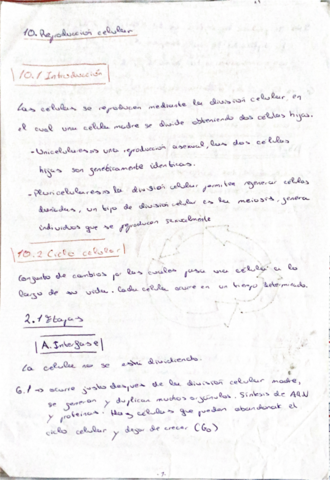 10. Reproducción celular
10.1 Introducción
Las células se reproducen mediante la división celular en
el cual una célula madre se divide obteniendo dos células hijas.
- Unicelulares → una reproducción asexual, las dos células
hijas son genéticamente idénticas.
- Pluricelulares → la división celular permite regenerar células
dañadas, un tipo de división celular es la meiosis, genera
individuos que se reproducen sexualmente
10.2 Ciclo celular
Conjunto de cambios por los cuales pasa una célula a lo
largo de su vida. Cada célula ocurre en un tiempo determinado.
2.1 Etapas
A. Interfase
La célula no se está dividiendo.
G.1 → ocurre justo después de la división celular madre,
se generan y duplican muchos orgánulos. Síntesis de ARN
y proteínas. Hay células que pueden abandonar el
ciclo celular y dejar de crecer (G0)